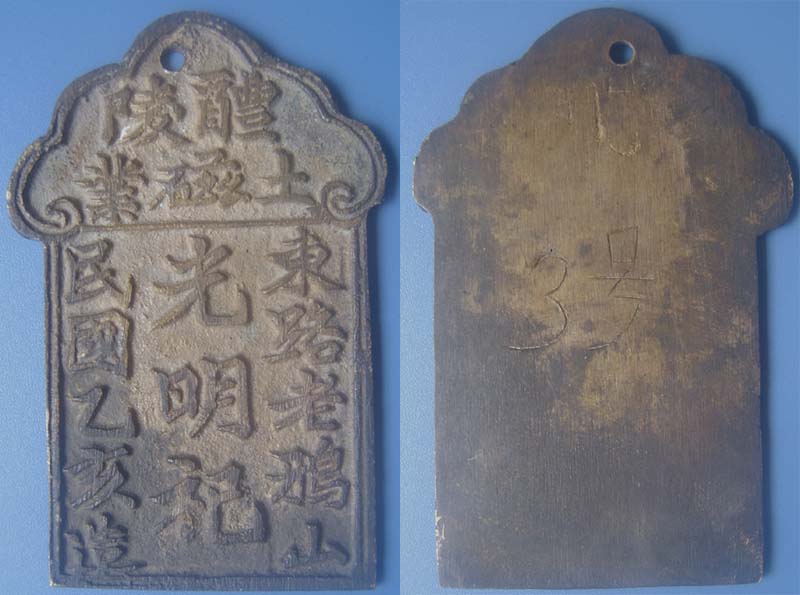 醴陵
土磁業
東路老鴉山
光明記
民國乙亥造
3号